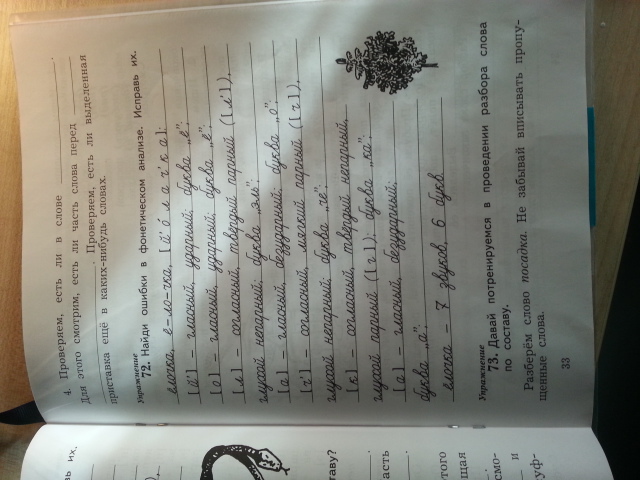 4. Проверяем, есть ли в слове
Для этого смотрим, есть ли часть слова перед
. Проверяем, есть ли выделенная
приставка ещё в каких-нибудь словах.
Упражнение
72. Найди ошибки в фонетическом анализе. Исправь их.
ёлочка, ё-ло-чка, [й' о́ л а ч' к а]:
[й'] – гласный, ударный; буква „ё“;
[о] – гласный, ударный; буква „ё“;
[л] – согласный, твердый парный ([л]),
глухой непарный; буква „эль“;
[а] – гласный, безударный; буква „о“;
[ч'] – согласный, мягкий парный ([ч]),
глухой непарный; буква „че“;
[к] – согласный, твердый непарный,
глухой парный ([г]); буква „ка“;
[а] – гласный, безударный;
буква „а“;
ёлочка – 7 звуков, 6 букв
Упражнение
73. Давай потренируемся в проведении разбора слова
по составу.
Разберём слово посадка. Не забывай вписывать пропу-
щенные слова.
33
их.
ставу?
часть
этого
щая
смо-
и
уф-